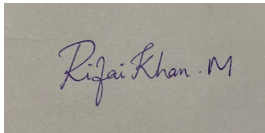 Rifai Khan. M